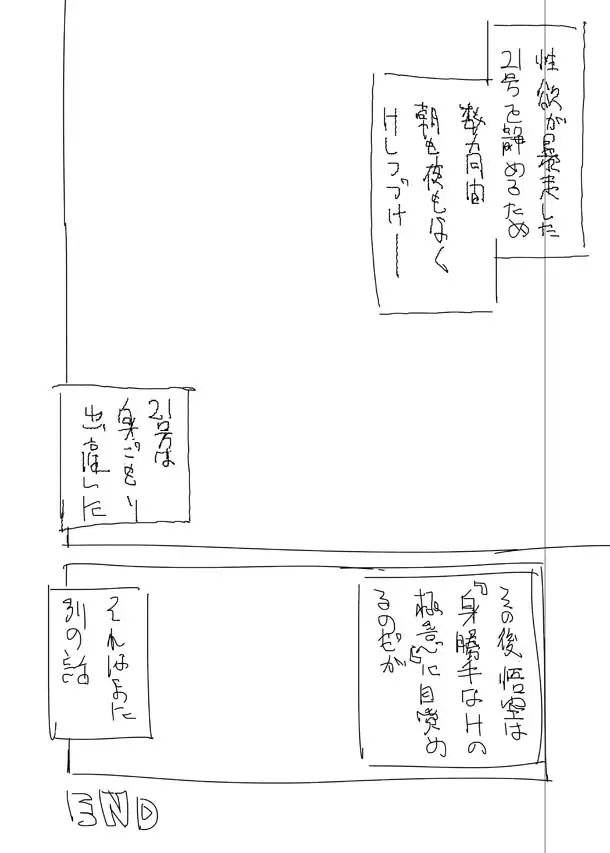 性欲が暴走した
21号を静めるため
数カ月間
朝も夜もなく
Hしつづけ——
21号は
身ごもり
出産した
その後、悟空は
『身勝手なHの
極意』に目覚め
るのだが
それはまた
別の話
END